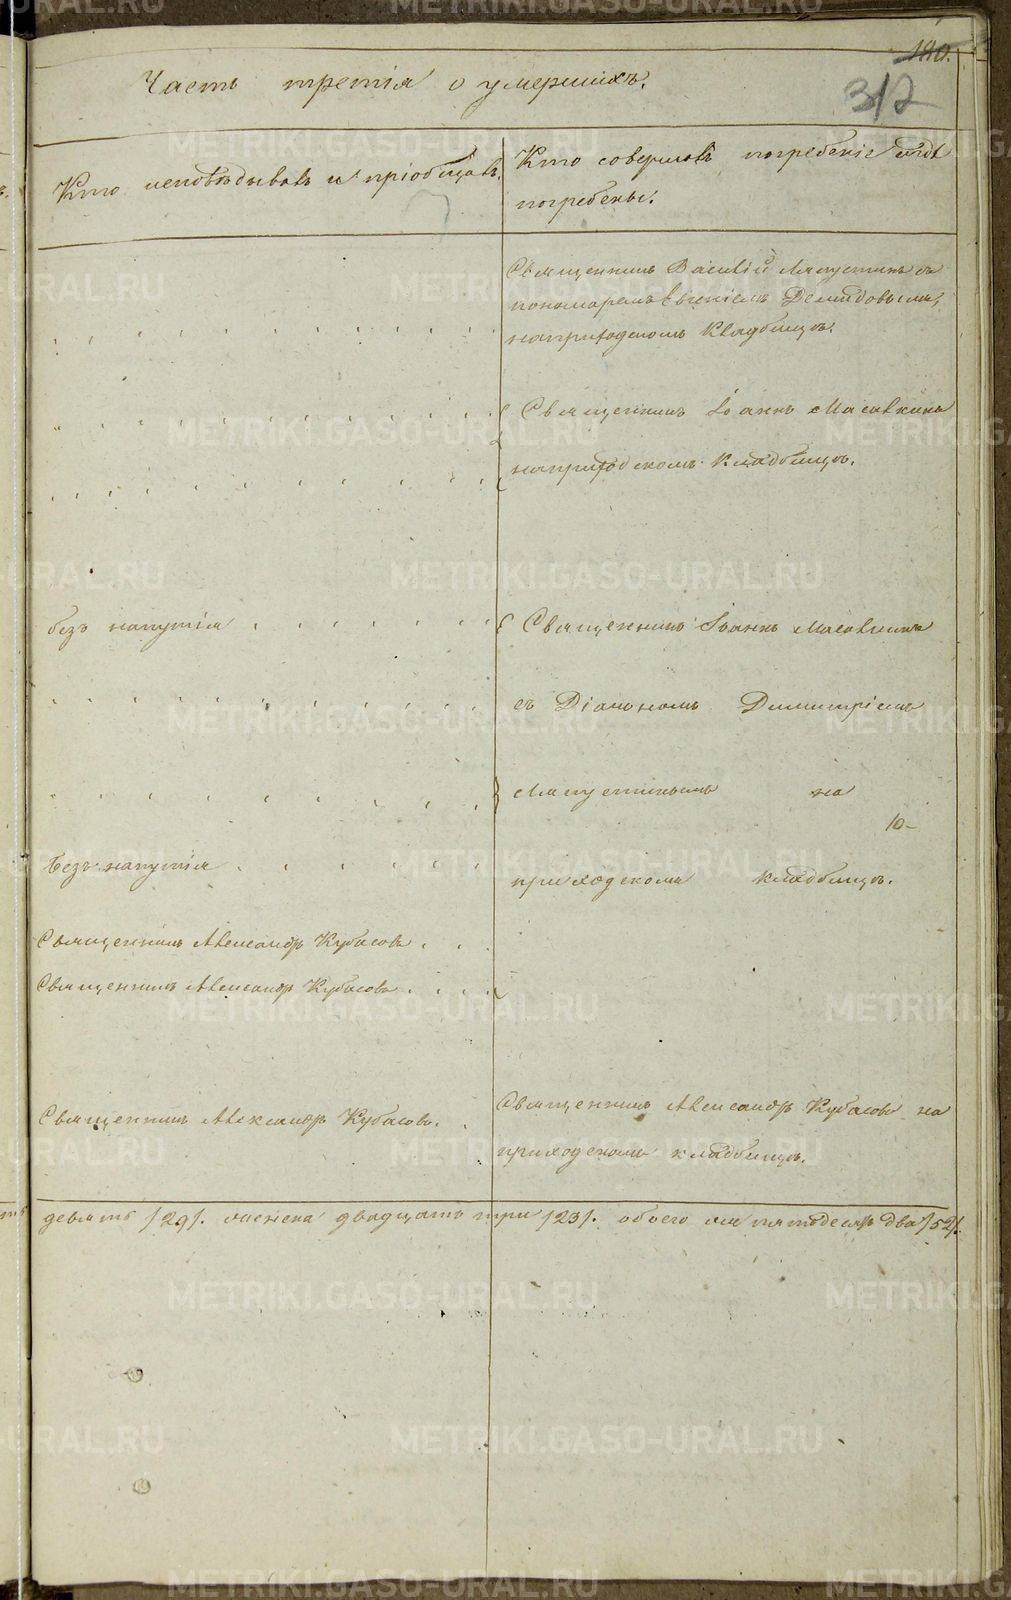 180.
312
Часть третія о умершихъ.
Кто исповѣдывалъ и пріобщалъ.
Кто совершалъ погребеніе и гдѣ
погребены.
Священникъ Василій Ляпустинъ съ
пономаремъ Евгеніемъ Демидовымъ,
на приходскомъ кладбищѣ.
Священникъ Іоаннъ
на приходскомъ кладбищѣ.
безъ напутія
Священникъ Іоаннъ
съ Діакономъ Димитріемъ
Ляпустинымъ на
10-
Безъ напутія
приходскомъ кладбищѣ.
Священникъ Александръ Кубасовъ
Священникъ Александръ Кубасовъ
Священникъ Александръ Кубасовъ.
Священникъ Александръ Кубасовъ на
приходскомъ кладбищѣ.
девять /29/. женска двадцать три /23/. обоего пятьдесятъ два /52/.
METRIKI.GASO-URAL.RU